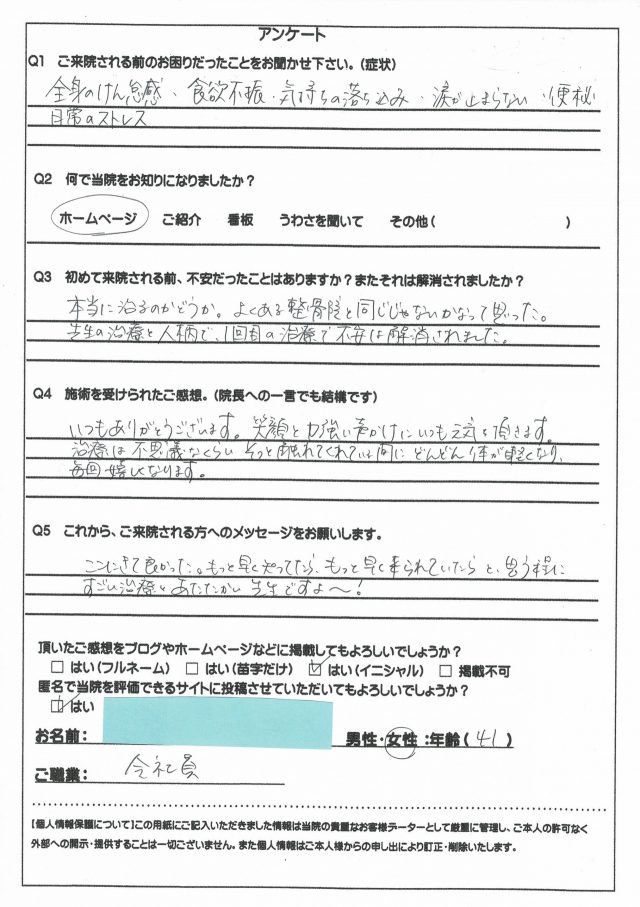 アンケート
Q1 ご来院される前のお困りだったことをお聞かせ下さい。(症状)
全身のけん怠感、食欲不振・気持ちの落ち込み・涙が止まらない・便秘
日常のストレス
Q2 何で当院をお知りになりましたか?
ホームページ ご紹介 看板 うわさを聞いて その他( )
Q3 初めて来院される前、不安だったことはありますか?またそれは解消されましたか?
本当に治るのかどうか。よくある整骨院と同じじゃないかなって思った。
先生の治療と人柄で、1回目の治療で不安は解消されました。
Q4 施術を受けられたご感想。(院長への一言でも結構です)
いつもありがとうございます。笑顔と力強い声かけにいつも元気を頂きます。
治療は不思議なくらい そっと触れてくれている間に どんどん体が軽くなり、
毎回嬉しくなります。
Q5 これから、ご来院される方へのメッセージをお願いします。
ここにきて良かった。もっと早く知ってたら、もっと早く来られていたらと、思う程に
すごい治療と あたたかい先生ですよ〜!
頂いたご感想をブログやホームページなどに掲載してもよろしいでしょうか?
□ はい(フルネーム) □ はい(苗字だけ) ☑ はい(イニシャル) □ 掲載不可
匿名で当院を評価できるサイトに投稿させていただいてもよろしいでしょうか?
☑ はい
お名前: 男性・女性:年齢(41)
ご職業: 会社員
【個人情報保護について】この用紙にご記入いただきました情報は当院の貴重なお客様データーとして厳重に管理し、ご本人の許可なく
外部への開示・提供することは一切ございません。また個人情報はご本人様からの申し出により訂正・削除いたします。